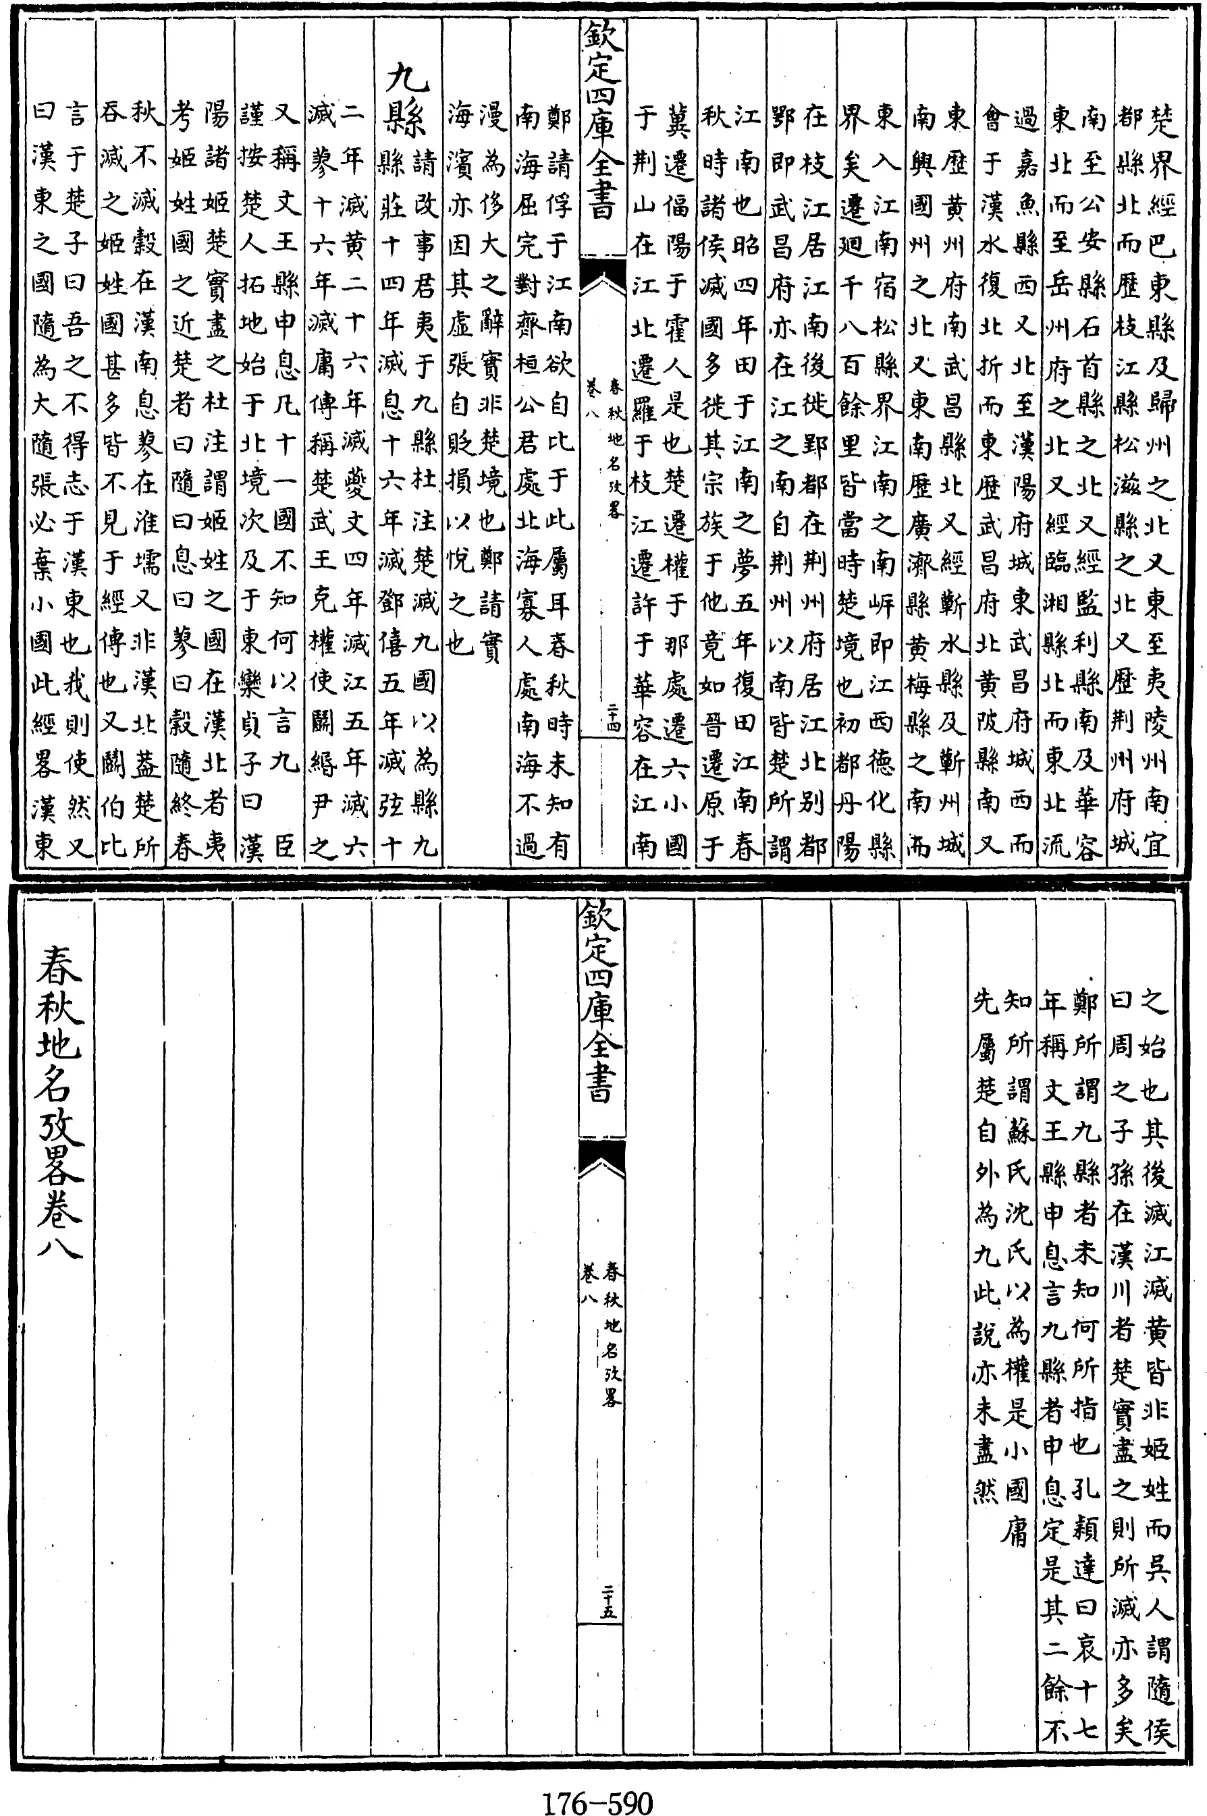 楚界經巴東縣及歸州之北又東至夷陵州南宜
都縣北而歷枝江縣松滋縣之北又歷荆州府城
南至公安縣石首縣之北又經監利縣南及華容
東北而至岳州府之北又經臨湘縣北而東北流
過嘉魚縣西又北至漢陽府城東武昌府城西而
會于漢水復北折而東歷武昌府北黄陂縣南又
東歷黄州府南武昌縣北又經蘄水縣及蘄州城
南興國州之北又東南歷廣濟縣黄梅縣之南而
東入江南宿松縣界江南之南岍即江西德化縣
界矣遷廻千八百餘里皆當時楚境也初都丹陽
在枝江居江南後徙郢都在荆州府居江北别都
鄂即武昌府亦在江之南自荆州以南皆楚所謂
江南也昭四年田于江南之夢五年復田江南春
秋時諸侯滅國多徙其宗族于他竟如晉遷原于
冀遷偪陽于霍人是也楚遷權于那處遷六小國
于荆山在江北遷羅于枝江遷許于華容在江南
欽定四庫全書
春秋地名攷畧
卷八
二十四
鄭請俘于江南欲自比于此屬耳春秋時未知有
南海屈完對齊桓公君處北海寡人處南海不過
漫為侈大之辭實非楚境也鄭請實
海濱亦因其虛張自貶損以悅之也
九縣
請改事君夷于九縣杜注楚滅九國以為縣九
縣莊十四年滅息十六年滅鄧僖五年滅弦十
二年滅黄二十六年滅夔文四年滅江五年滅六
滅蓼十六年滅庸傳稱楚武王克權使鬬緡尹之
又稱文王縣申息凡十一國不知何以言九 臣
謹按楚人拓地始于北境次及于東欒貞子曰漢
陽諸姬楚實盡之杜注謂姬姓之國在漢北者夷
考姬姓國之近楚者曰隨曰息曰蓼曰穀隨終春
秋不滅穀在漢南息蓼在淮壖又非漢北葢楚所
吞滅之姬姓國甚多皆不見于經傳也又鬬伯比
言于楚子曰吾之不得志于漢東也我則使然又
曰漢東之國隨為大隨張必棄小國此經畧漢東
之始也其後滅江滅黄皆非姬姓而吳人謂隨侯
曰周之子孫在漢川者楚實盡之則所滅亦多矣
鄭所謂九縣者未知何所指也孔穎達曰哀十七
年稱文王縣申息言九縣者申息定是其二餘不
知所謂蘇氏沈氏以為權是小國庸
先屬楚自外為九此說亦未盡然
欽定四庫全書
春秋地名攷畧
卷八
二十五
春秋地名攷畧卷八
176-590